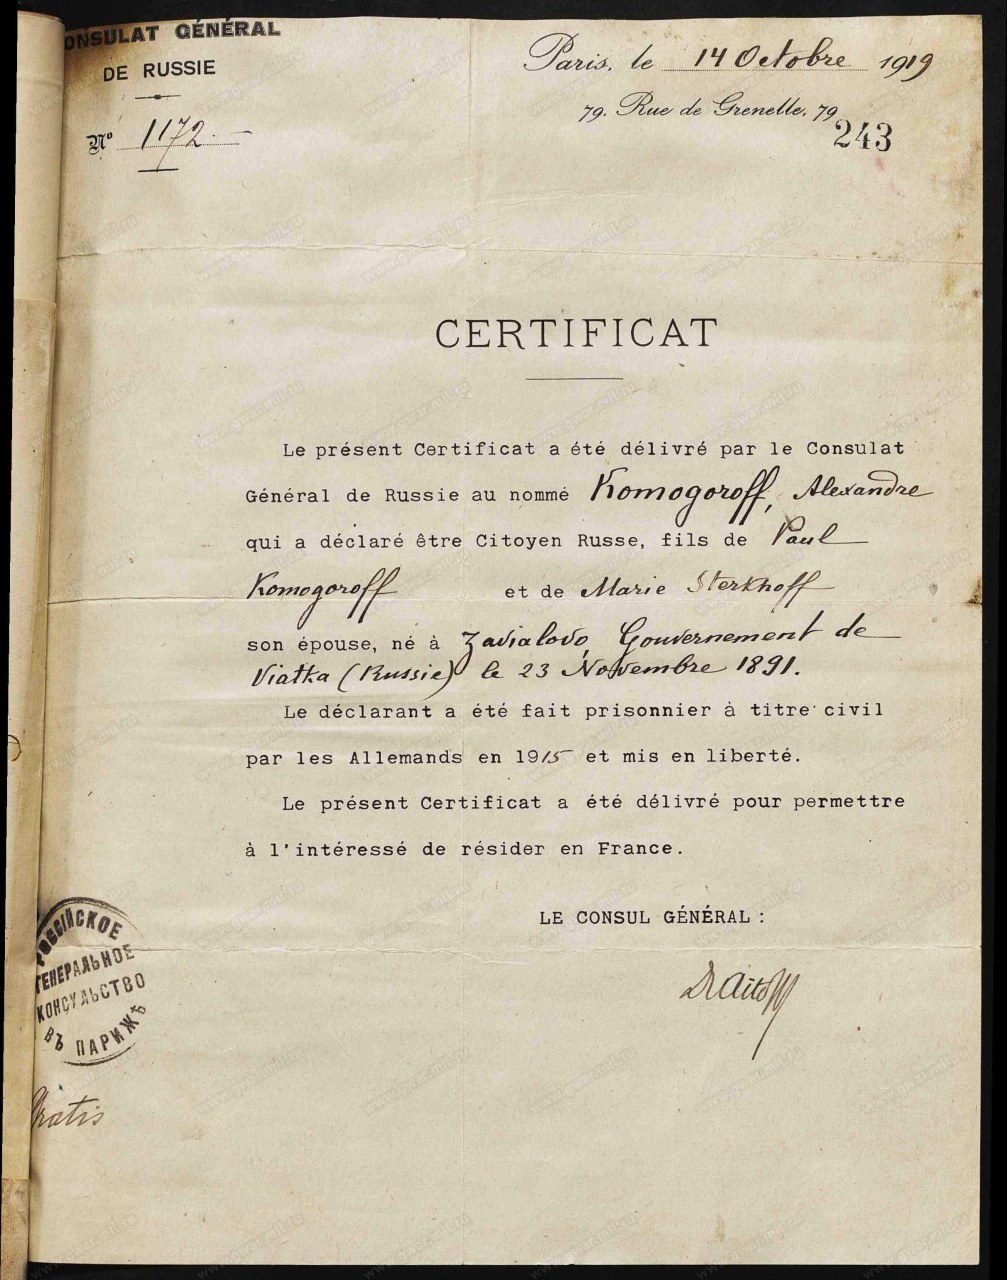 CONSULAT GÉNÉRAL
DE RUSSIE
Nº 1172.
Paris, le 14 Octobre 1919
79, Rue de Grenelle, 79
243
CERTIFICAT
Le présent Certificat a été délivré par le Consulat
Général de Russie au nommé Komogoroff, Alexandre
qui a déclaré être Citoyen Russe, fils de Paul
Komogoroff et de Marie Sterkhoff
son épouse, né à Zavialovo, Gouvernement de
Viatka (Russie) le 23 Novembre 1891.
Le déclarant a été fait prisonnier à titre civil
par les Allemands en 1915 et mis en liberté.
Le présent Certificat a été délivré pour permettre
à l'intéressé de résider en France.
LE CONSUL GÉNÉRAL :
РОССІЙСКОЕ
ГЕНЕРАЛЬНОЕ
КОНСУЛЬСТВО
ВЪ ПАРИЖѢ
Gratis